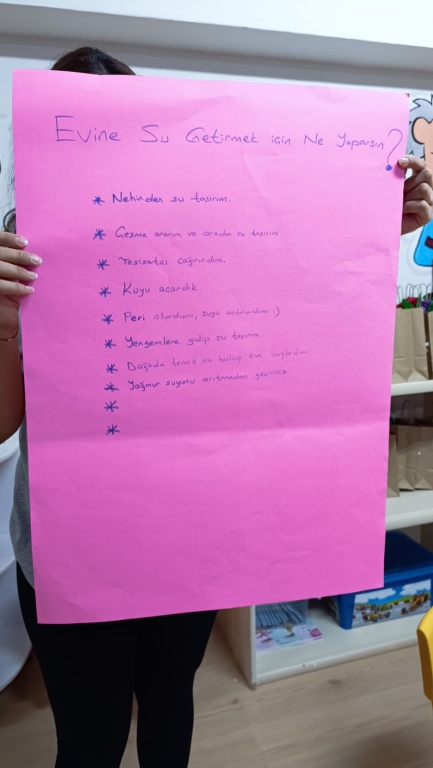 Evine Su Getirmek için Ne Yaparsın?
* Nehirden su taşırım.
* Çeşme ararım ve orada su taşırım.
* Tesisatçı çağırırdım.
* Kuyu açardık.
* Peri olurdum, suyu açtırırdım :)
* Yengemlere gidip su taşırım.
* Doğada temiz su bulup eve
* Yağmur suyunu arıtmadan geçiririz.
*
*